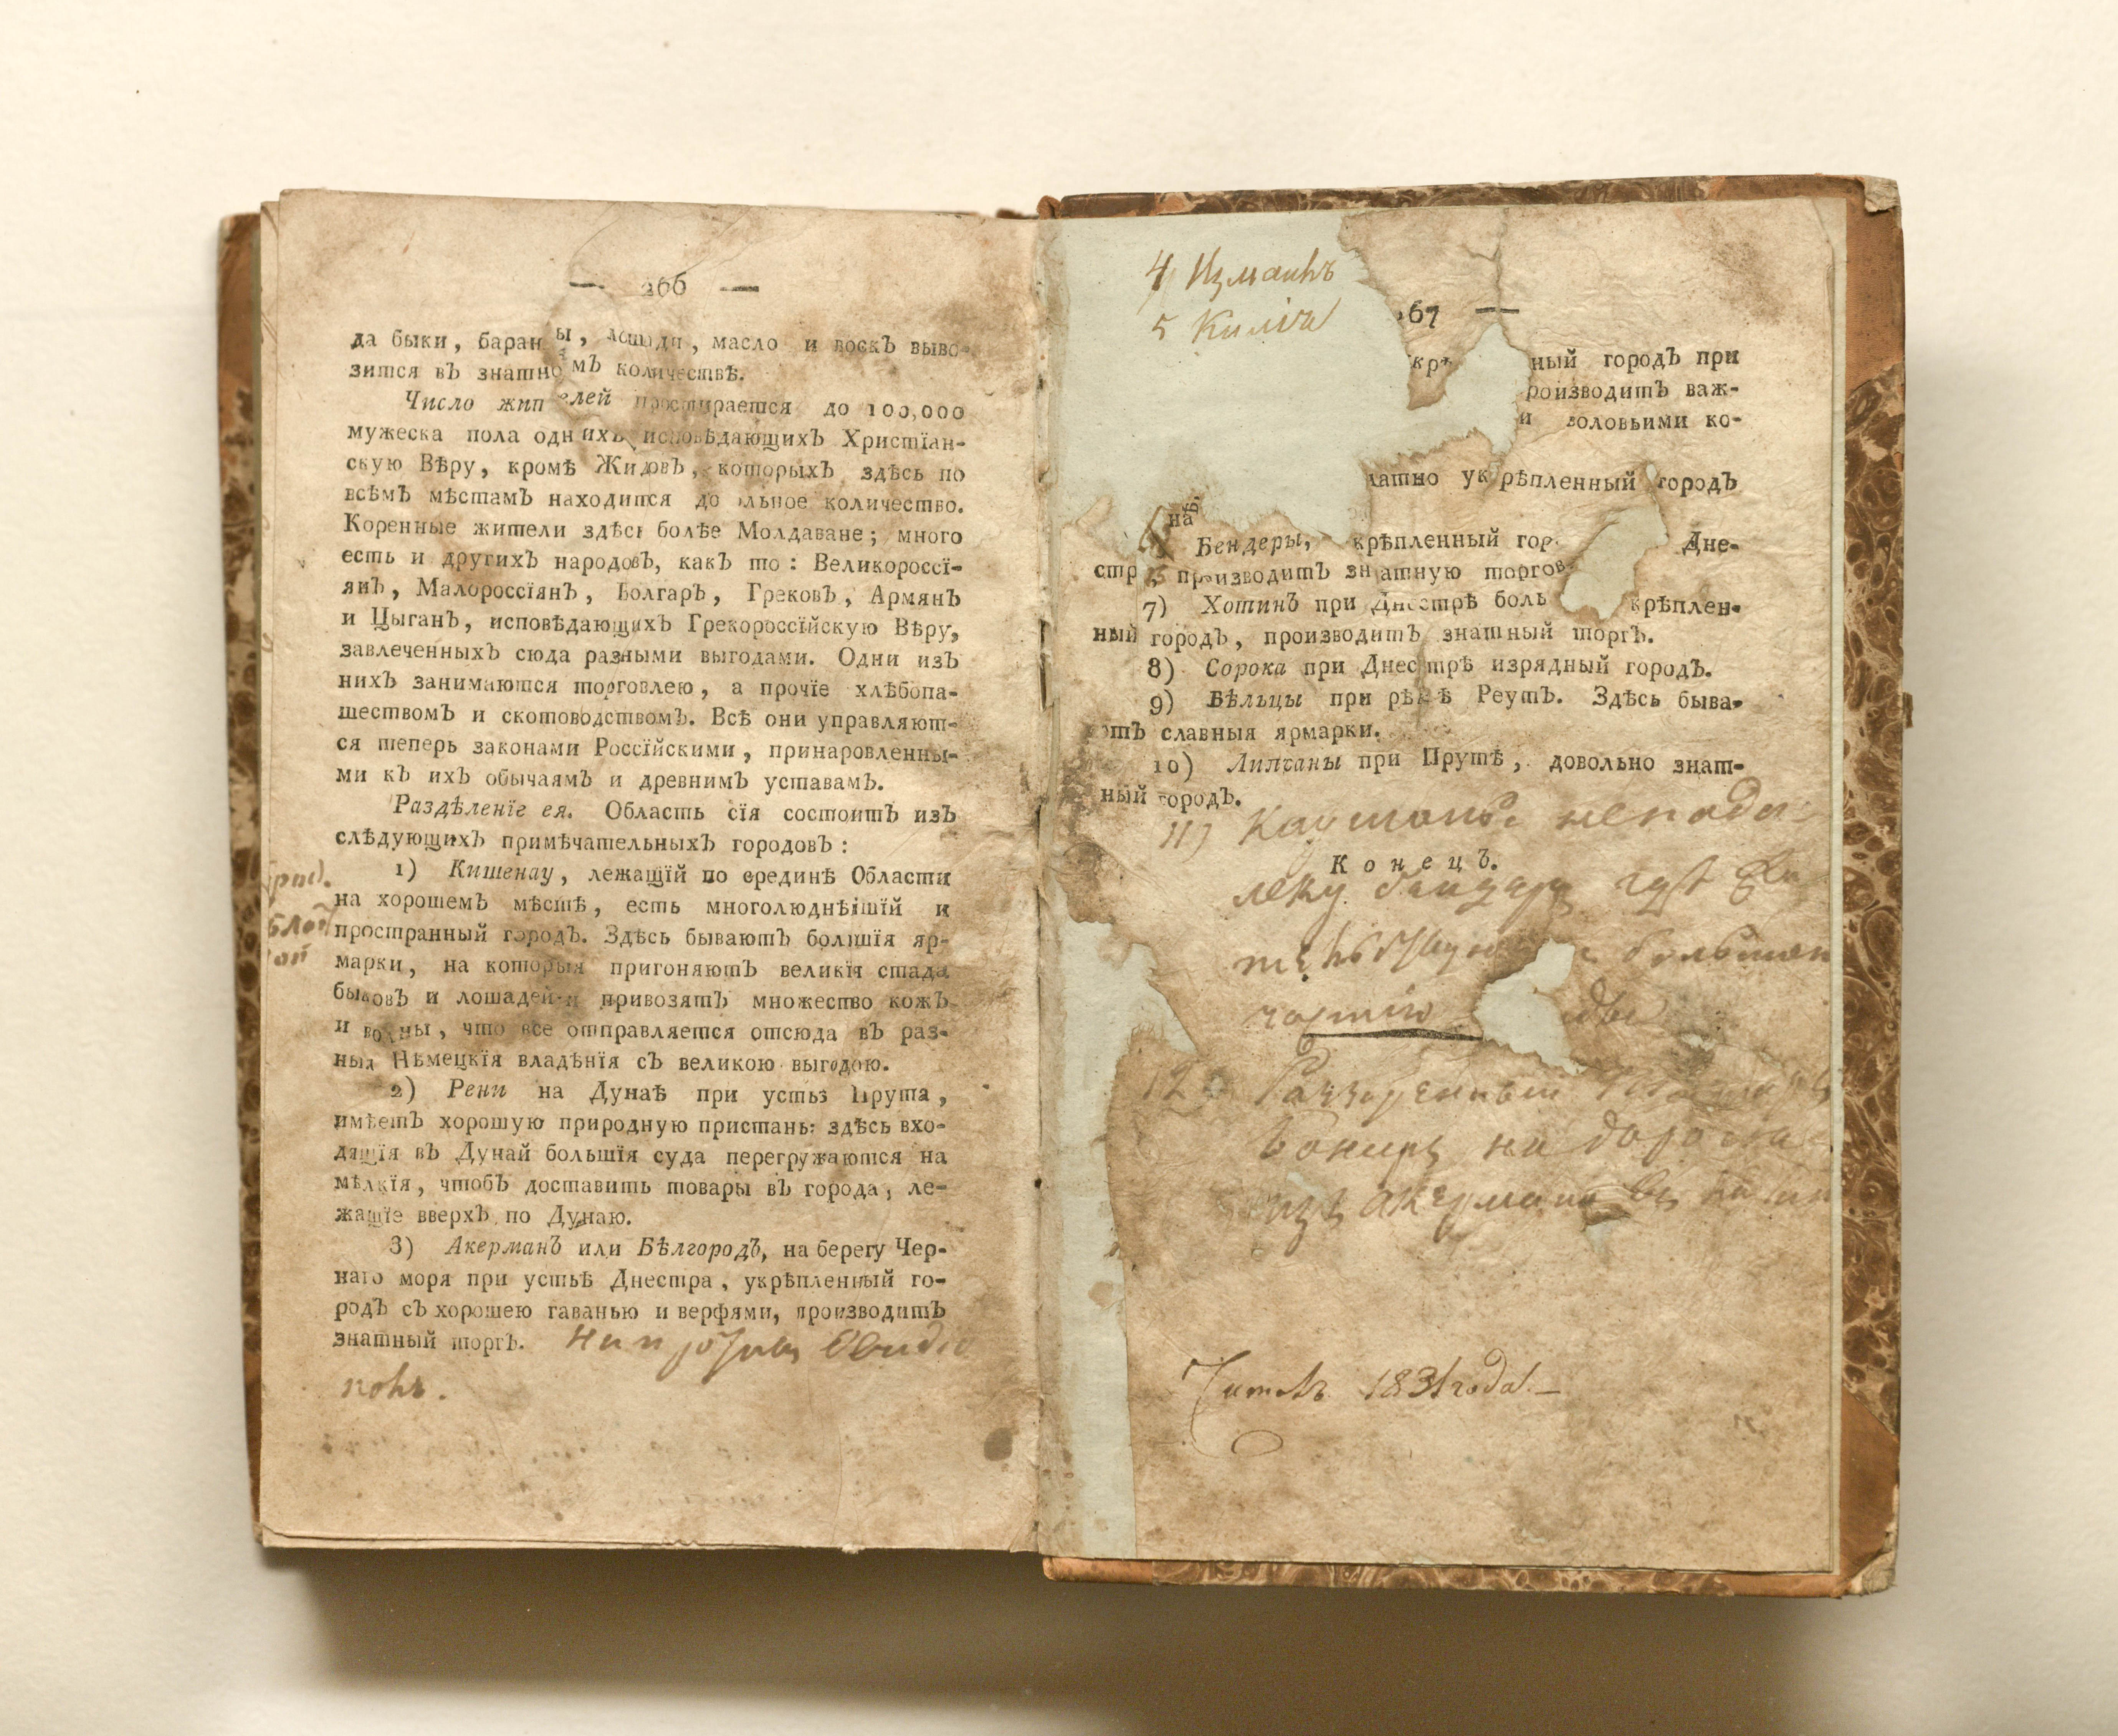 — 266 —
да быки, бараны, лошади, масло и воскъ выво-
зится въ знатномъ количествѣ.
Число жителей простирается до 100,000
мужеска пола однихъ исповѣдающихъ Христїан-
скую Вѣру, кромѣ Жидовъ, которыхъ здѣсь по
всѣмъ мѣстамъ находится до ольное количество.
Коренные жители здѣсь болѣе Молдаване; много
есть и другихъ народовъ, какъ то: Великороссї-
янъ, Малороссїянъ, Болгаръ, Грековъ, Армянъ
и Цыганъ, исповѣдающихъ Грекороссїйскую Вѣру,
завлеченныхъ сюда разными выгодами. Одни изъ
нихъ занимаются торговлею, а прочїе хлѣбопа-
шествомъ и скотоводствомъ. Всѣ они управляют-
ся теперь законами Россїйскими, принаровленны-
ми къ ихъ обычаямъ и древнимъ уставамъ.
Раздѣленїе ея. Область сїя состоитъ изъ
слѣдующихъ примѣчательныхъ городовъ:
1) Кишенау, лежащїй по срединѣ Области
на хорошемъ мѣстѣ, есть многолюднѣйшїй и
пространный городъ. Здѣсь бываютъ болшїя яр-
марки, на которыя пригоняютъ великїя стада
быковъ и лошадей и привозятъ множество кожъ
и волны, что все отправляется отсюда въ раз-
ныя Нѣмецкїя владѣнїя съ великою выгодою.
2) Рени на Дунаѣ при устьѣ Прута,
имѣетъ хорошую природную пристань: здѣсь вхо-
дящїя въ Дунай большїя суда перегружаются на
мѣлкїя, чтобъ доставить товары въ города, ле-
жащїе вверхъ по Дунаю.
3) Акерманъ или Бѣлгородъ, на берегу Чер-
наго моря при устьѣ Днестра, укрѣпленный го-
родъ съ хорошею гаванью и верфями, производитъ
знатный торгъ.
4 Измаилъ
5 Килiя
267 —
укрѣ ный городъ при
роизводитъ важ-
и воловьими ко-
латно укрѣпленный городъ
наѣ.
Бендеры, крѣпленный гор Дне-
стр , производитъ знатную торгов
7) Хотинъ при Днестрѣ боль крѣплен-
ный городъ, производитъ знатный торгъ.
8) Сорока при Днестрѣ изрядный городъ.
9) Бѣльцы при рѣкѣ Реутъ. Здѣсь быва-
ютъ славныя ярмарки.
10) Липчаны при Прутѣ, довольно знат-
ный городъ.
11)
Конецъ.
12
изъ акермана въ
1831 года. —